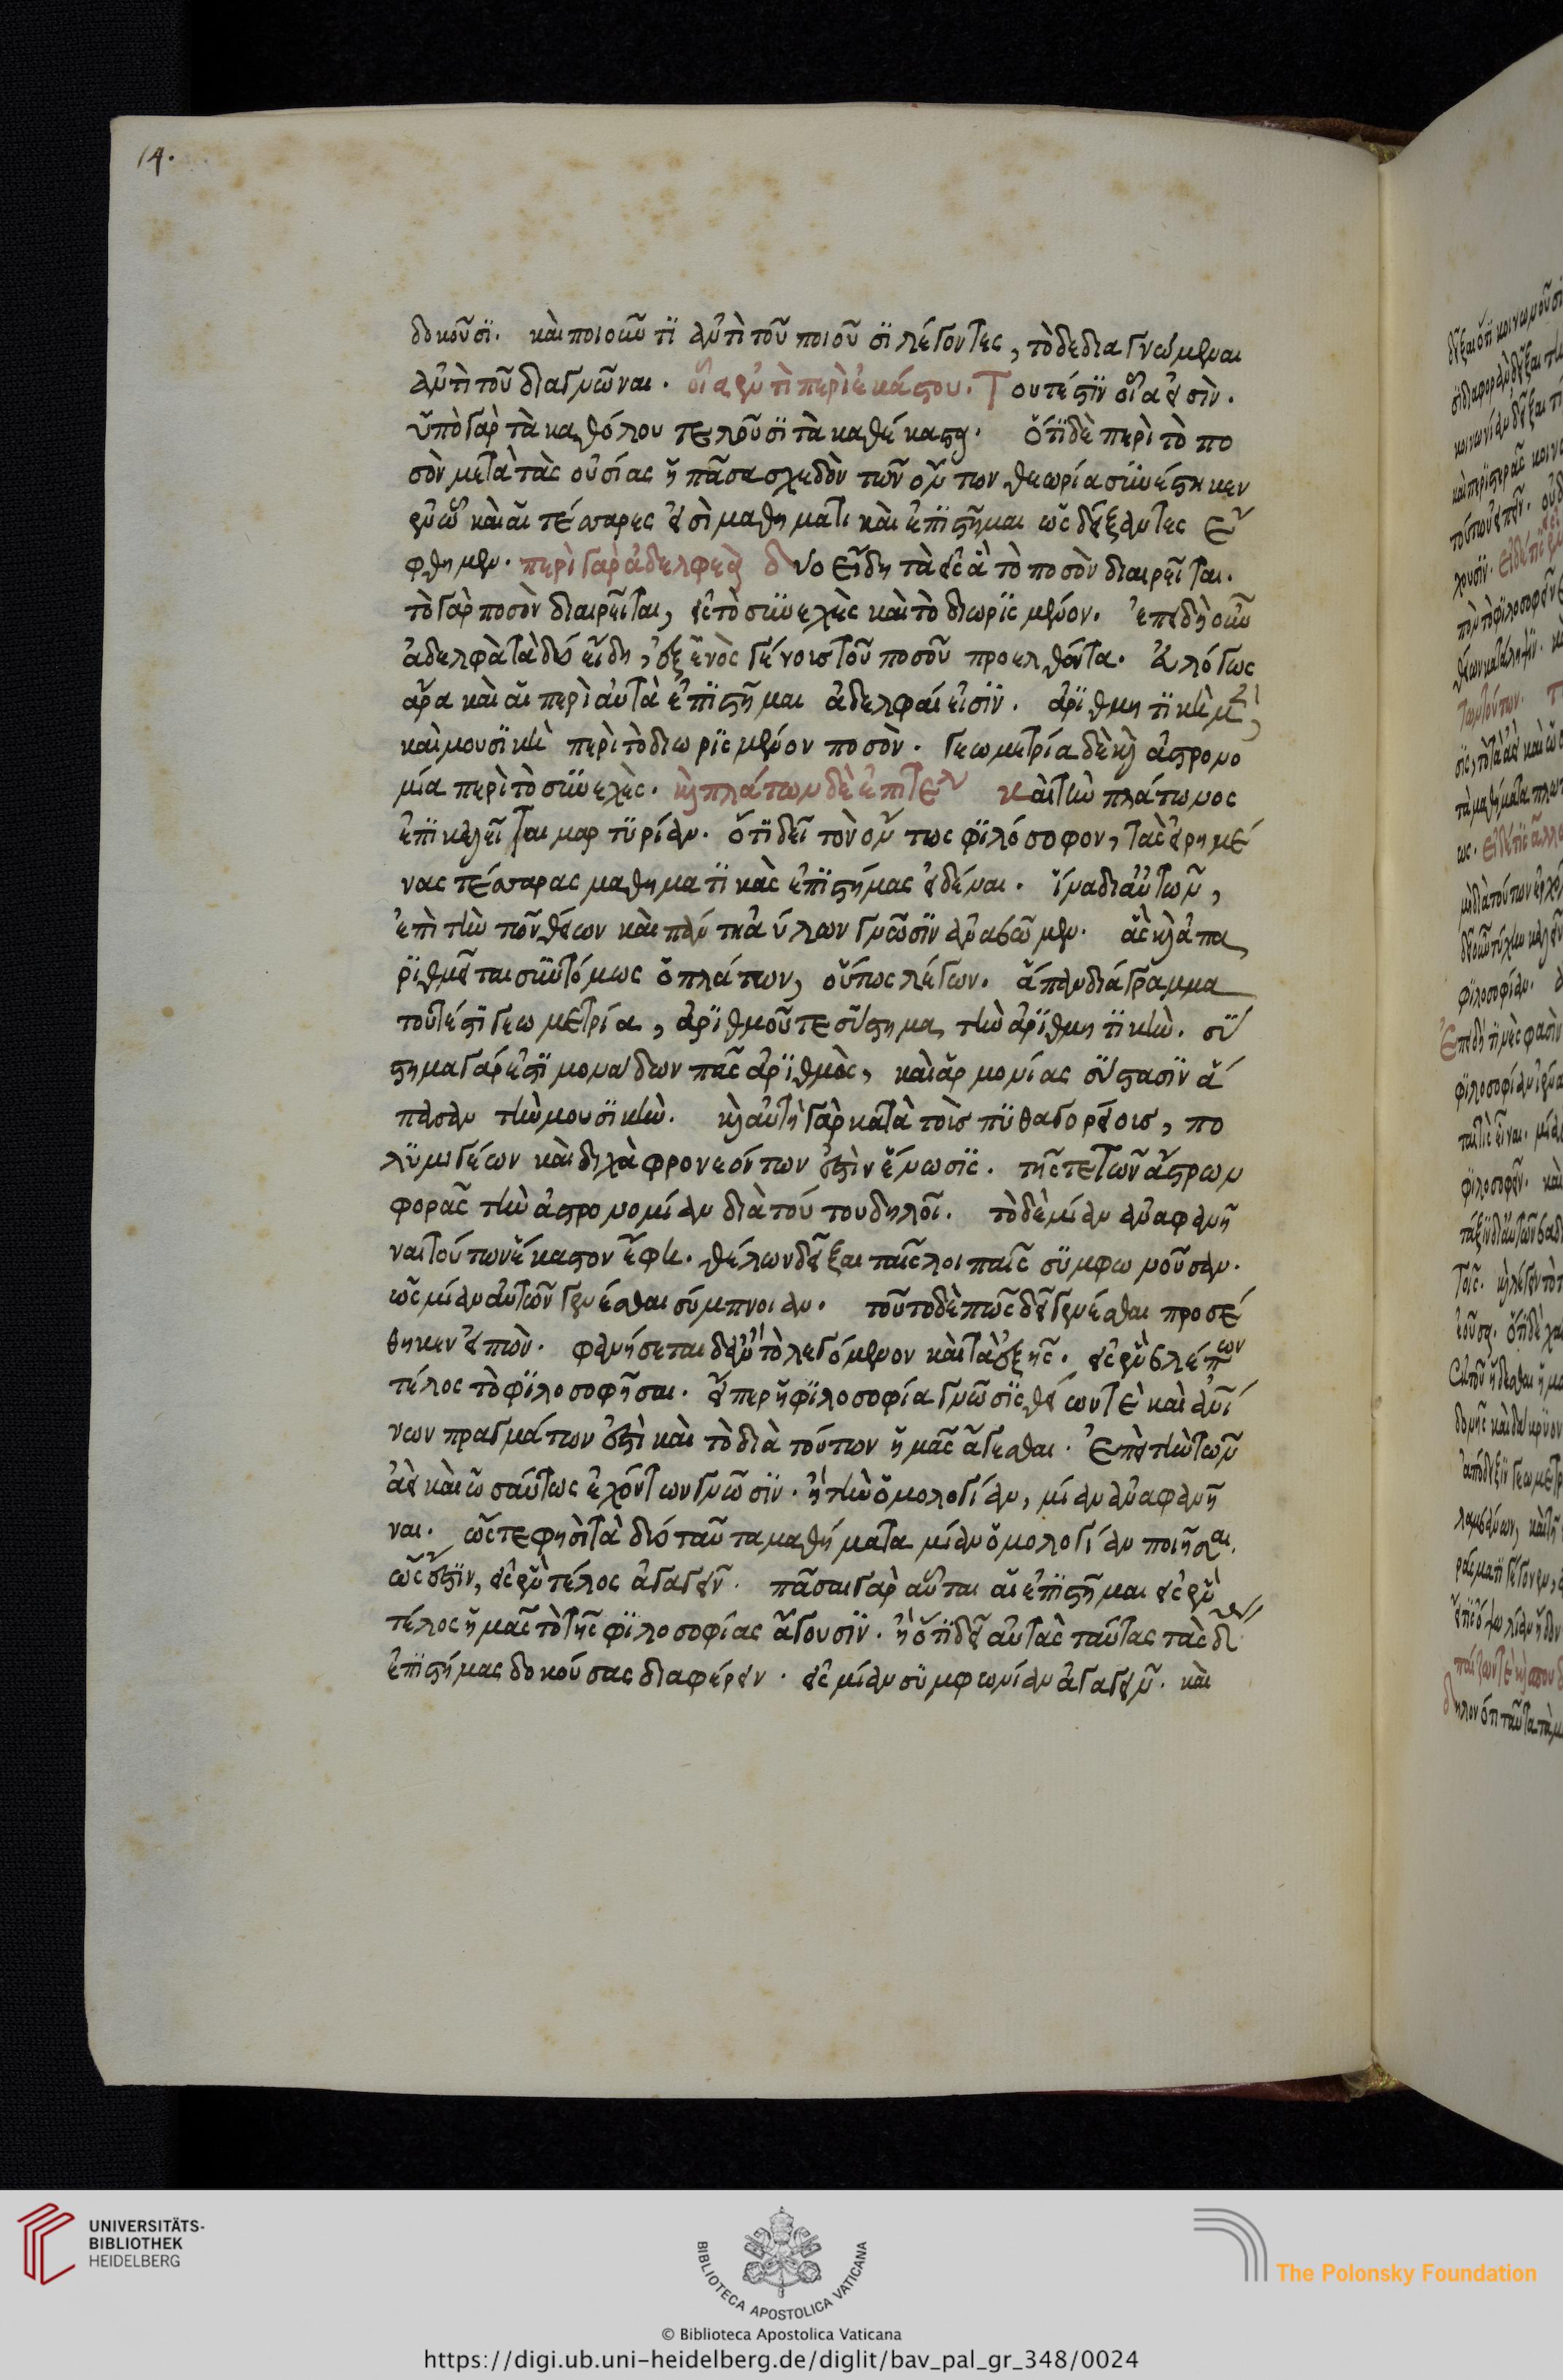 14.
δοκοῦσϊ. καὶ ποιοιῶ τϊ ἀντὶ τοῦ ποιοῦσϊ λέγοντες, τὸ δὲ διαγνώμεναι
ἀντὶ τοῦ διαγνῶναι. οἷα ἐντὶ περὶ ἑκάστου. Τουτέστϊν οἷα εἰσὶν.
ὑπὸ γὰρ τὰ καθόλου τελοῦσϊ τὰ καθέκαστα. ὅτϊ δὲ περὶ τὸ πο
σὸν μετὰ τὰς οὐσίας ἡ πᾶσα σχεδὸν τῶν ὄντων θεωρία συνέστηκεν
ἐνῶ καὶ αἱ τέσσαρες εἰσὶ μαθηματικαὶ ἐπϊστῆμαι ὡς δείξαντες εὐ
φθημεν. περὶ γὰρ ἀδελφεὰ δύο εἴδη τὰ εἰς ἃ τὸ ποσὸν διαιρεῖται.
τὸ γὰρ ποσὸν διαιρεῖται, εἰς τὸ συνεχὲς καὶ τὸ διωρϊσμένον. ἐπειδὴ οὖν
ἀδελφὰ τὰ δύο εἴδη, ἐξ ἑνὸς γένους τοῦ ποσοῦ προελθόντα. εὐλόγως
ἄρα καὶ αἱ περὶ αὐτὰ ἐπϊστῆμαι ἀδελφαί εἰσϊν. ἀρϊθμητϊκὴ μὲν
καὶ μουσϊκὴ περὶ τὸ διωρϊσμένον ποσὸν. γεωμετρία δὲ καὶ ἀστρονο
μία περὶ τὸ συνεχὲς. καὶ πλάτων δὲ ἐπὶ τέλ καὶ τὴν πλάτωνος
ἐπϊκαλεῖται μαρτϋρίαν. ὅτϊ δεῖ τὸν ὄντως φϊλόσοφον, τὰς εἰρημέ
νας τέσσαρας μαθηματϊκὰς ἐπϊστήμας εἰδέναι. ἵνα δι αὐτῶν,
ἐπὶ τὴν τῶν θείων καὶ πάντη ἀύλων γνῶσϊν ἀναβῶμεν. ἃς καὶ ἀπα
ρϊθμεῖται συντόμως ὁ πλάτων, οὕτως λέγων. ἅπαν διάγραμμα
τουτέστϊ γεωμετρία, ἀρϊθμοῦ τε σύστημα, τὴν ἀρϊθμητϊκὴν. σύ
στημα γάρ ἐστϊ μονάδων πᾶς ἀρϊθμὸς, καὶ ἁρμονίας σύστασϊν ἅ
πασαν τὴν μουσϊκὴν. καὶ αὐτὴ γὰρ κατὰ τοῖς πϋθαγορείοις, πο
λϋμιγέων καὶ διχὰ φρονεόντων ἐστὶν ἕνωσϊς. τῆς τε τῶν ἄστρων
φορᾶς τὴν ἀστρονομίαν διὰ τούτου δηλοῖ. τὸ δὲ μίαν ἀναφανῆ
ναι τούτων ἕκαστον ἔφη. θέλων δεῖξαι ταῖς λοιπαῖς σϋμφωνοῦσαν.
ὡς μίαν αὐτῶν γενέσθαι σύμπνοιαν. τοῦτο δὲ πῶς δεῖ γενέσθαι προσέ
θηκεν εἰπὼν. φανήσεται δ' ἂν τὸ λεγόμενον καὶ τὰ ἑξῆς. εἰς ἓν βλέπων
τέλος τὸ φϊλοσοφῆσαι. εἴπερ ἡ φϊλοσοφία γνῶσϊς θείων τὲ καὶ ἀνθρωπί
νων πραγμάτων ἐστὶ καὶ τὸ διὰ τούτων ἡμᾶς ἄγεσθαι. ἐπὶ τὴν τῶν
ἀεὶ καὶ ὡσαύτως ἐχόντων γνῶσϊν. ἢ τὴν ὁμολογίαν, μίαν ἀναφανῆ
ναι. ὥστε φησὶ τὰ διὸ ταῦτα μαθήματα μίαν ὁμολογίαν ποιῆσαι.
ὥς ἐστϊν, εἰς ἓν τέλος ἀγαγεῖν. πᾶσαι γὰρ αὗται αἱ ἐπϊστῆμαι εἰς ἓν
τέλος ἡμᾶς τὸ τῆς φϊλοσοφίας ἄγουσϊν. ἢ ὅτϊ δεῖ αὐτὰς ταύτας τὰς δ
ἐπϊστήμας δοκούσας διαφέρειν. εἰς μίαν σϋμφωνίαν ἀγαγεῖν. καὶ
UNIVERSITÄTS-
BIBLIOTHEK
HEIDELBERG
BIBLIOTECA APOSTOLICA VATICANA
The Polonsky Foundation
© Biblioteca Apostolica Vaticana
https://digi.ub.uni-heidelberg.de/diglit/bav_pal_gr_348/0024